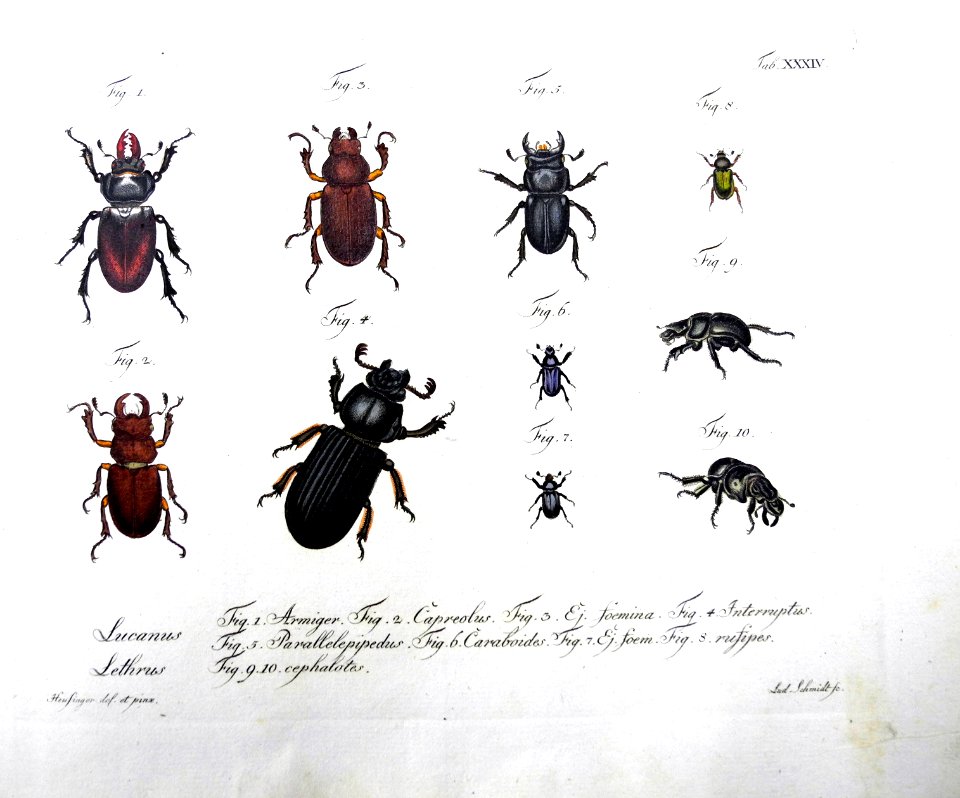 Tab. XXXIV.
Fig. 1.
Fig. 3.
Fig. 5.
Fig. 8.
Fig. 9.
Fig. 6.
Fig. 4.
Fig. 2.
Fig. 7.
Fig. 10.
Lucanus Fig. 1. Armiger. Fig. 2. Capreolus. Fig. 3. Ej. foemina. Fig. 4. Interruptus.
Fig. 5. Parallelepipedus. Fig. 6. Caraboides. Fig. 7. Ej. foem. Fig. 8. rufipes.
Lethrus Fig. 9. 10. cephalotes.
Heusinger del. et pinx. Lud. Schmidt sc.